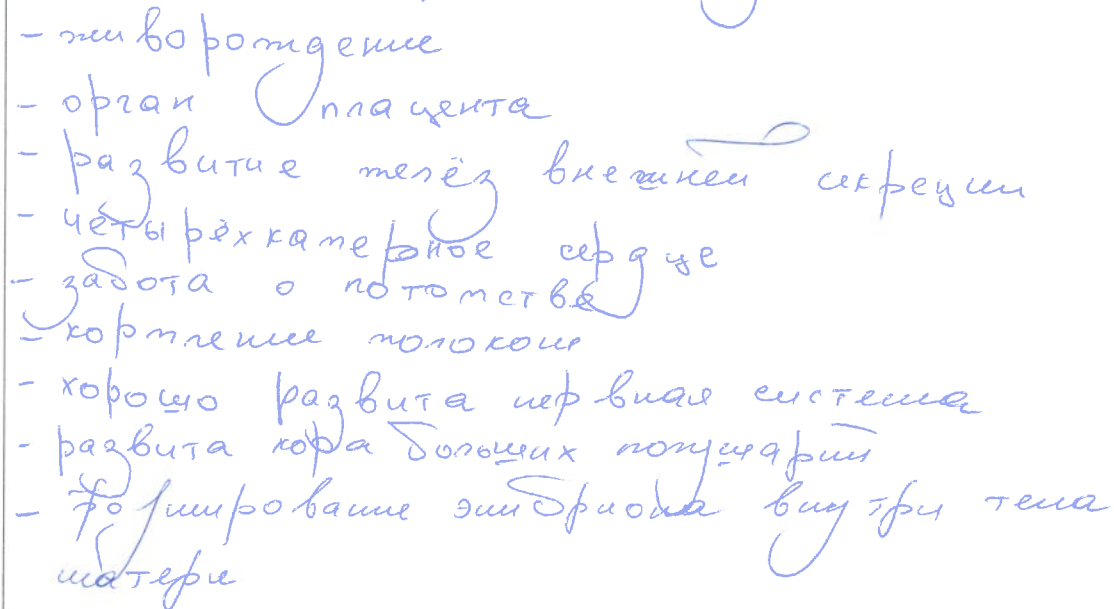 - живорождение
- орган плацента
- развитие желёз внешней секреции
- четырёхкамерное сердце
- забота о потомстве
- кормление молоком
- хорошо развита нервная система
- развита кора больших полушарий
- формирование эмбриона внутри тела
матери